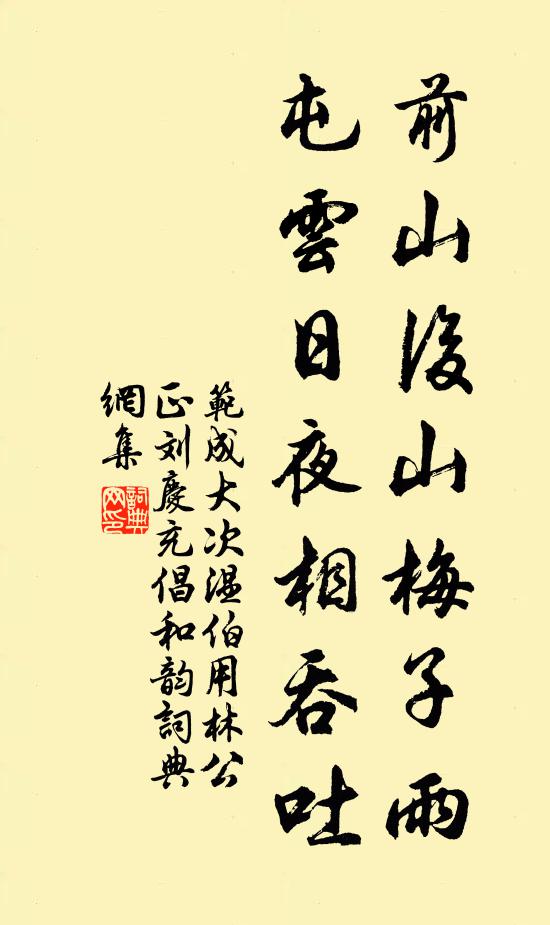 前山後山梅子雨
屯雲日夜相吞吐
範成大次温伯用林公
正刘慶充倡和韵詞典
網集
詞典網印